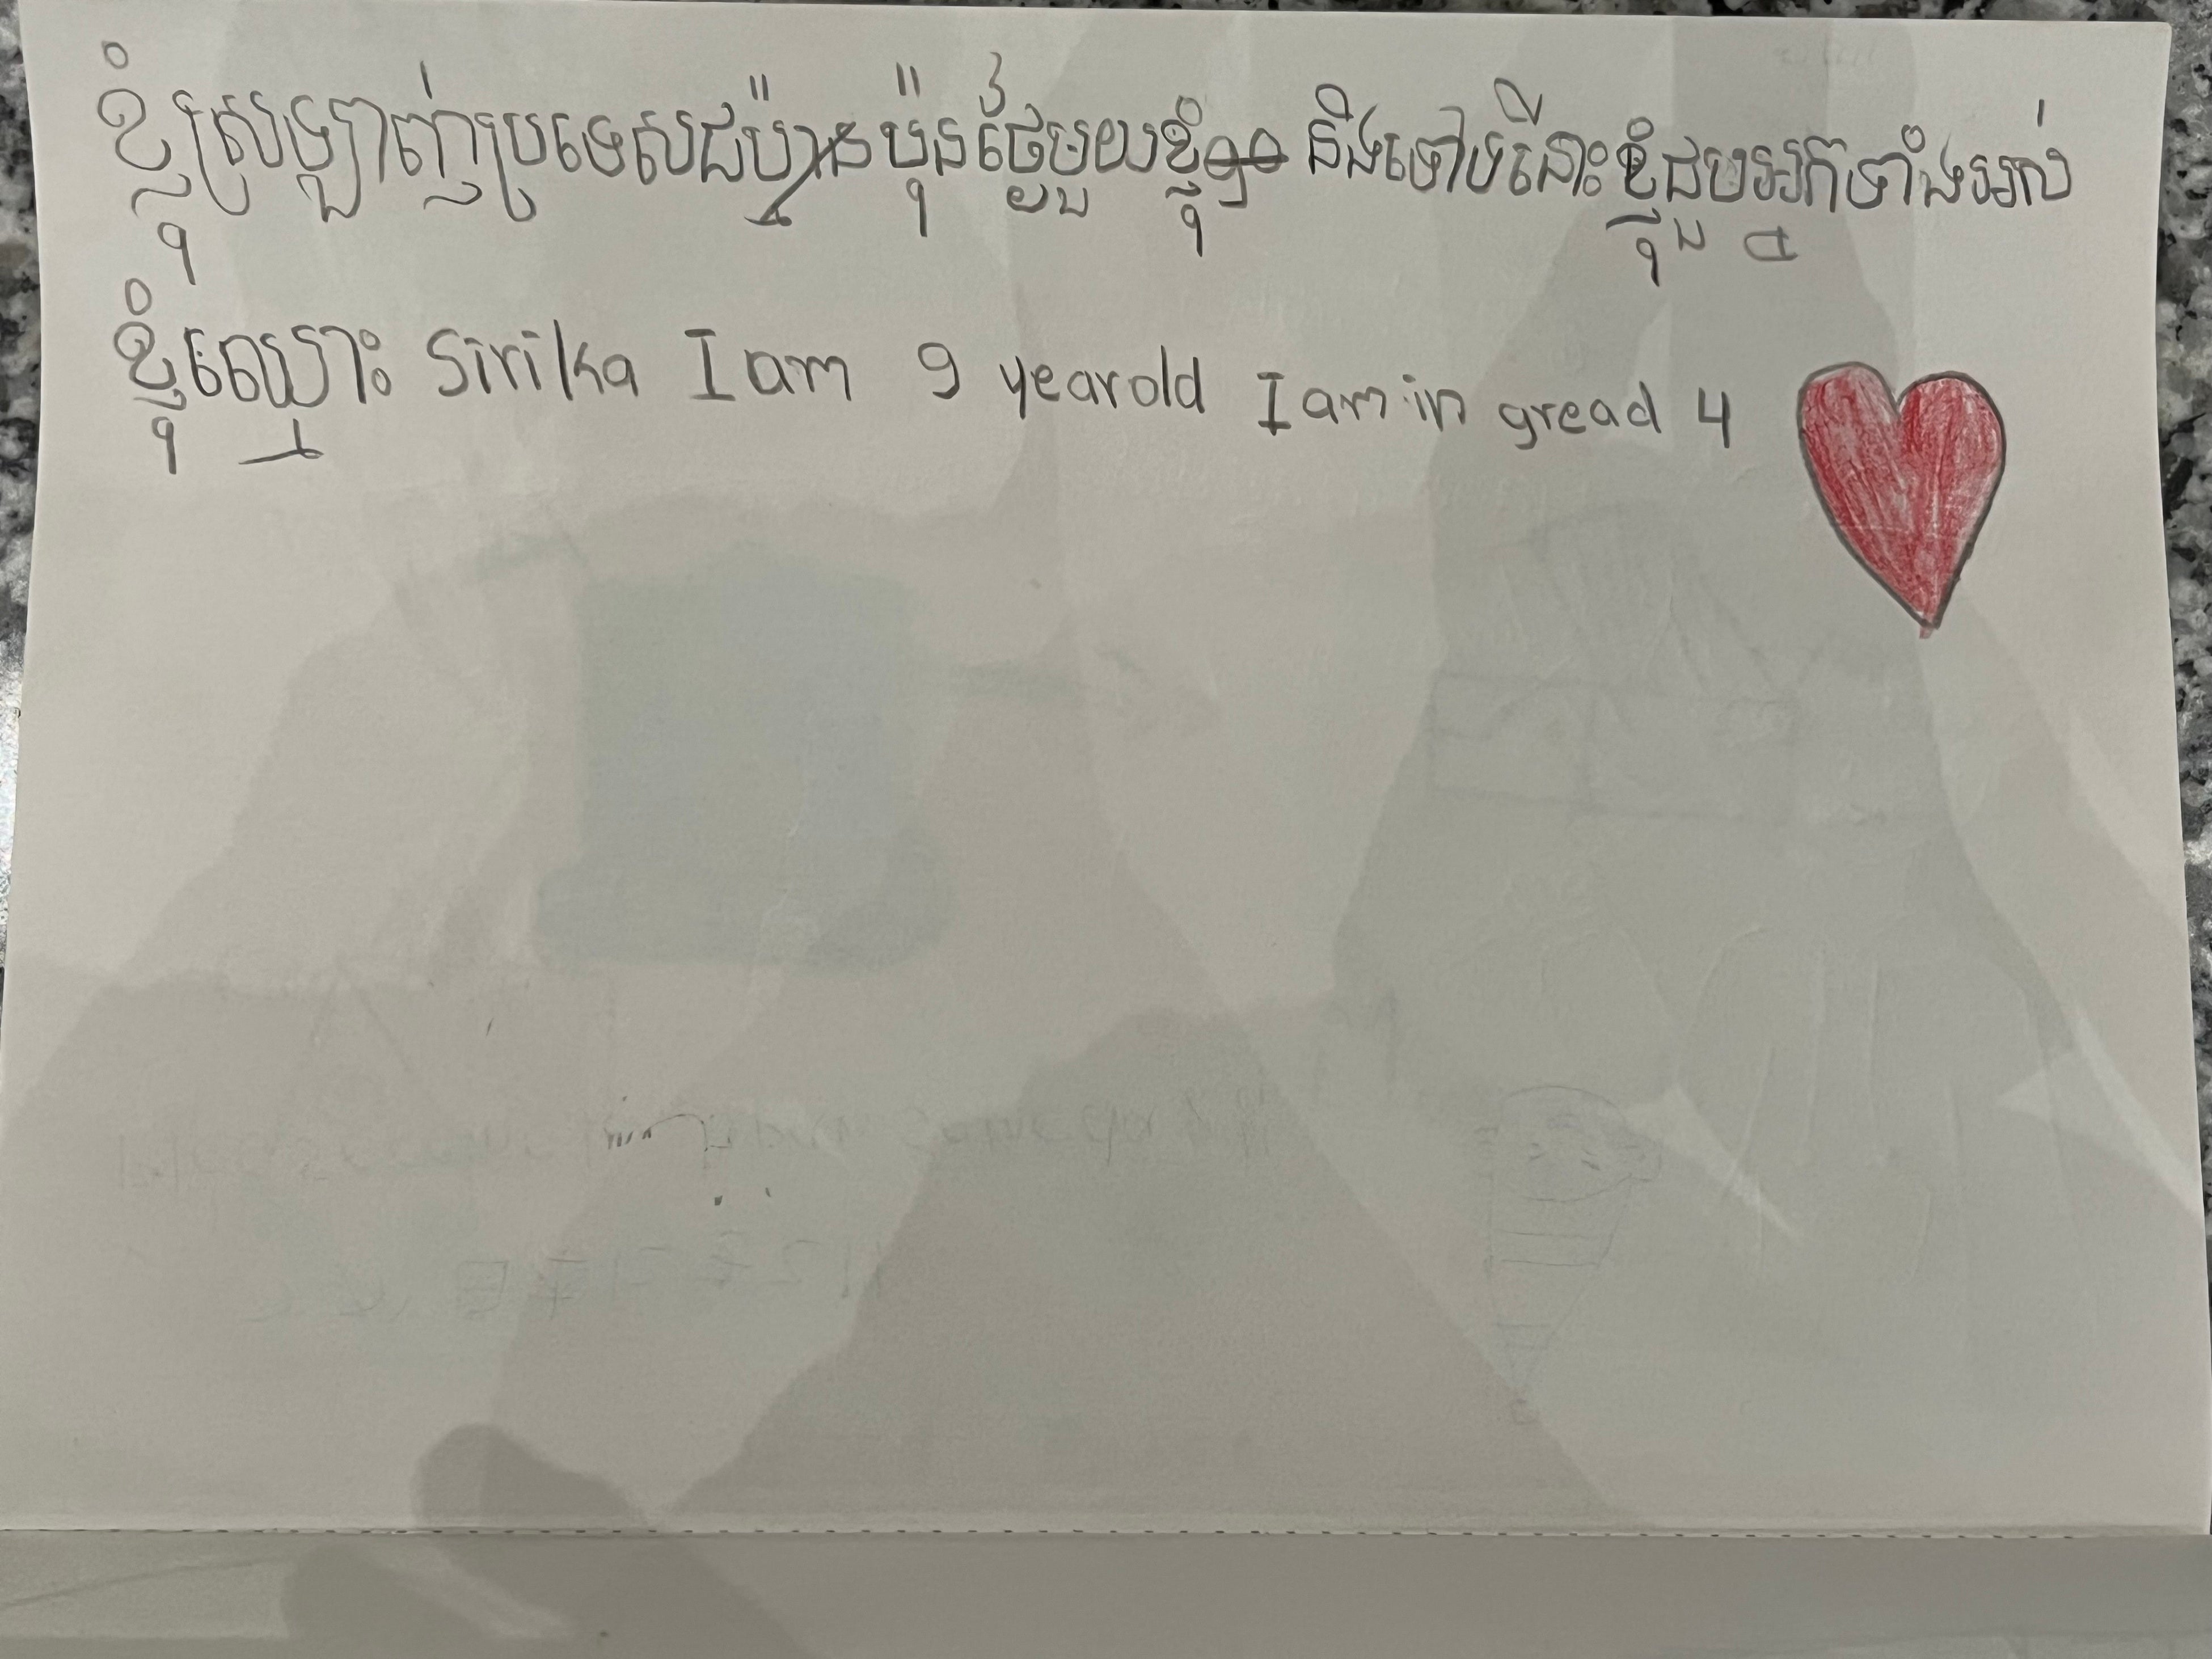 ខ្ញុំស្រឡាញ់ប្រទេសជប៉ាន ប៉ុនថ្ងៃមួយខ្ញុំ នឹងទៅទីនោះខ្ញុំជួបអ្នកទាំងអស់
ខ្ញុំឈ្មោះ Sirika I am 9 year old I am in gread 4